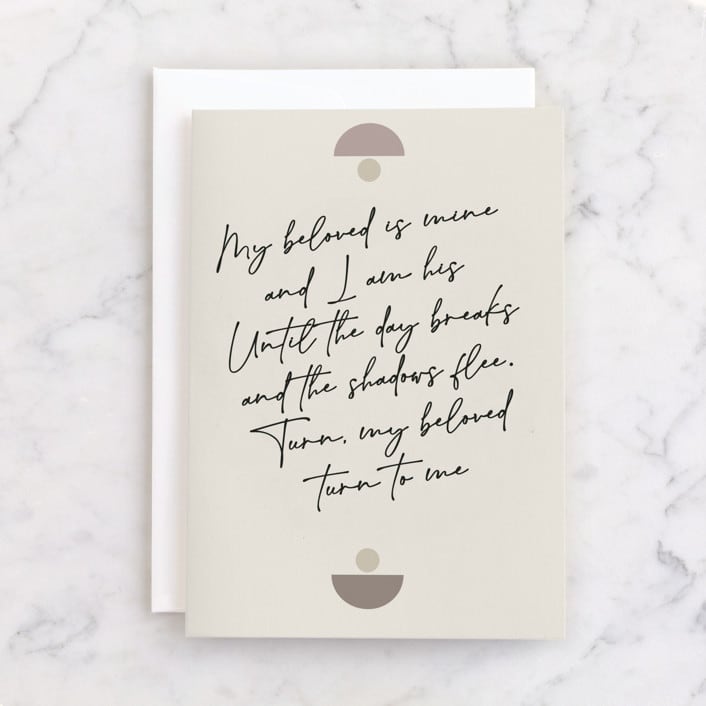 My beloved is mine
and I am his
Until the day breaks
and the shadows flee.
Turn, my beloved
turn to me